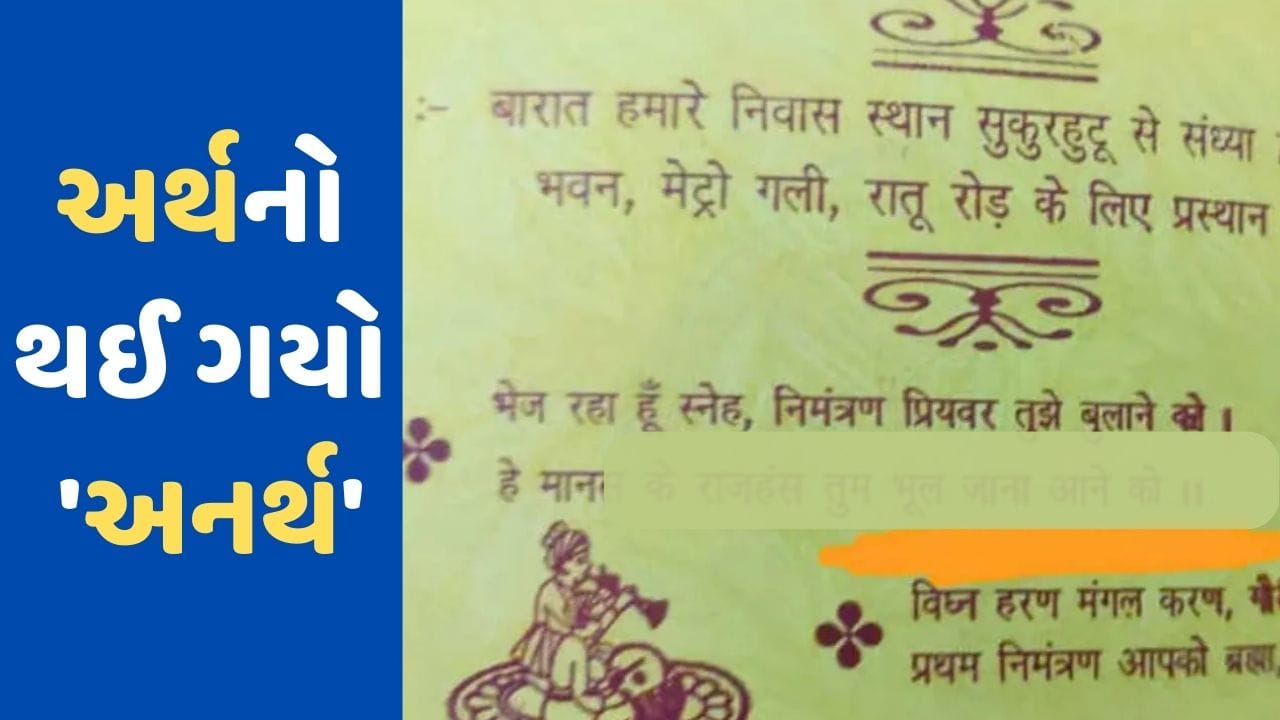 અર્થનો
થઈ ગયો
'અનર્થ'
:- बारात हमारे निवास स्थान सुकुरहुटू से संध्या
भवन, मेट्रो गली, रातू रोड़ के लिए प्रस्थान
भेज रहा हूँ स्नेह, निमंत्रण प्रियवर तुझे बुलाने को ।
हे मानस के राजहंस तुम भूल जाना आने को ।।
विघ्न हरण मंगल करण,
प्रथम निमंत्रण आपको ब्रह्मा,